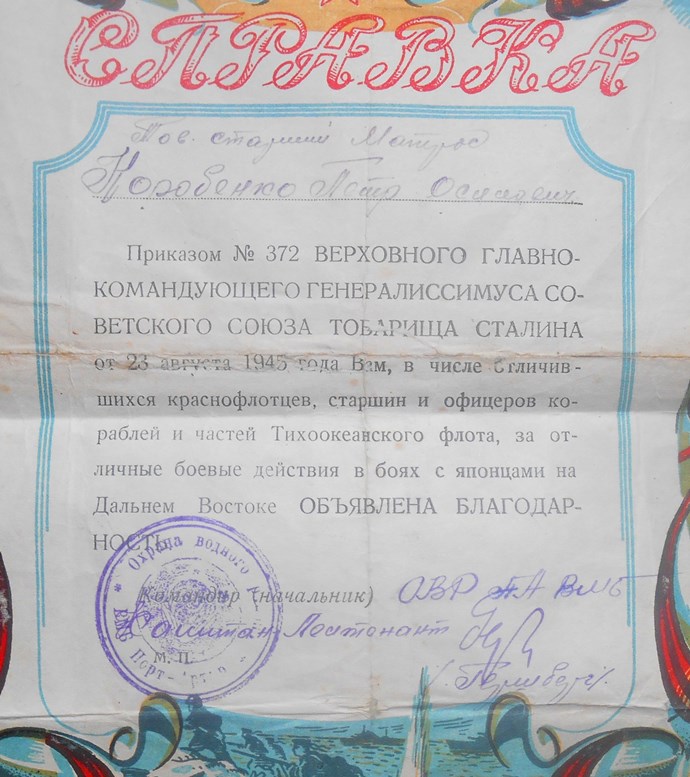 СПРАВКА
Тов. старший Матрос
Коробенко Петр
Приказом № 372 ВЕРХОВНОГО ГЛАВНО-
КОМАНДУЮЩЕГО ГЕНЕРАЛИССИМУСА СО-
ВЕТСКОГО СОЮЗА ТОВАРИЩА СТАЛИНА
от 23 августа 1945 года Вам, в числе отличив-
шихся краснофлотцев, старшин и офицеров ко-
раблей и частей Тихоокеанского флота, за от-
личные боевые действия в боях с японцами на
Дальнем Востоке ОБЪЯВЛЕНА БЛАГОДАР-
НОСТЬ.
Охрана водного
Командир (начальник) ОВР ПА ВМБ
Капитан-Лейтенант
М. П.
ВМБ Порт-Артур